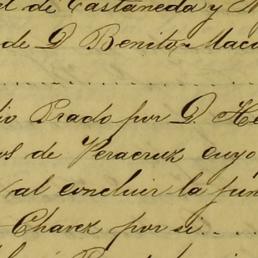 de Castañeda y
de D. Benito Maca
io Prado por D. He
os de Veracruz cuyo
al concluir la fun
Chavez por si....